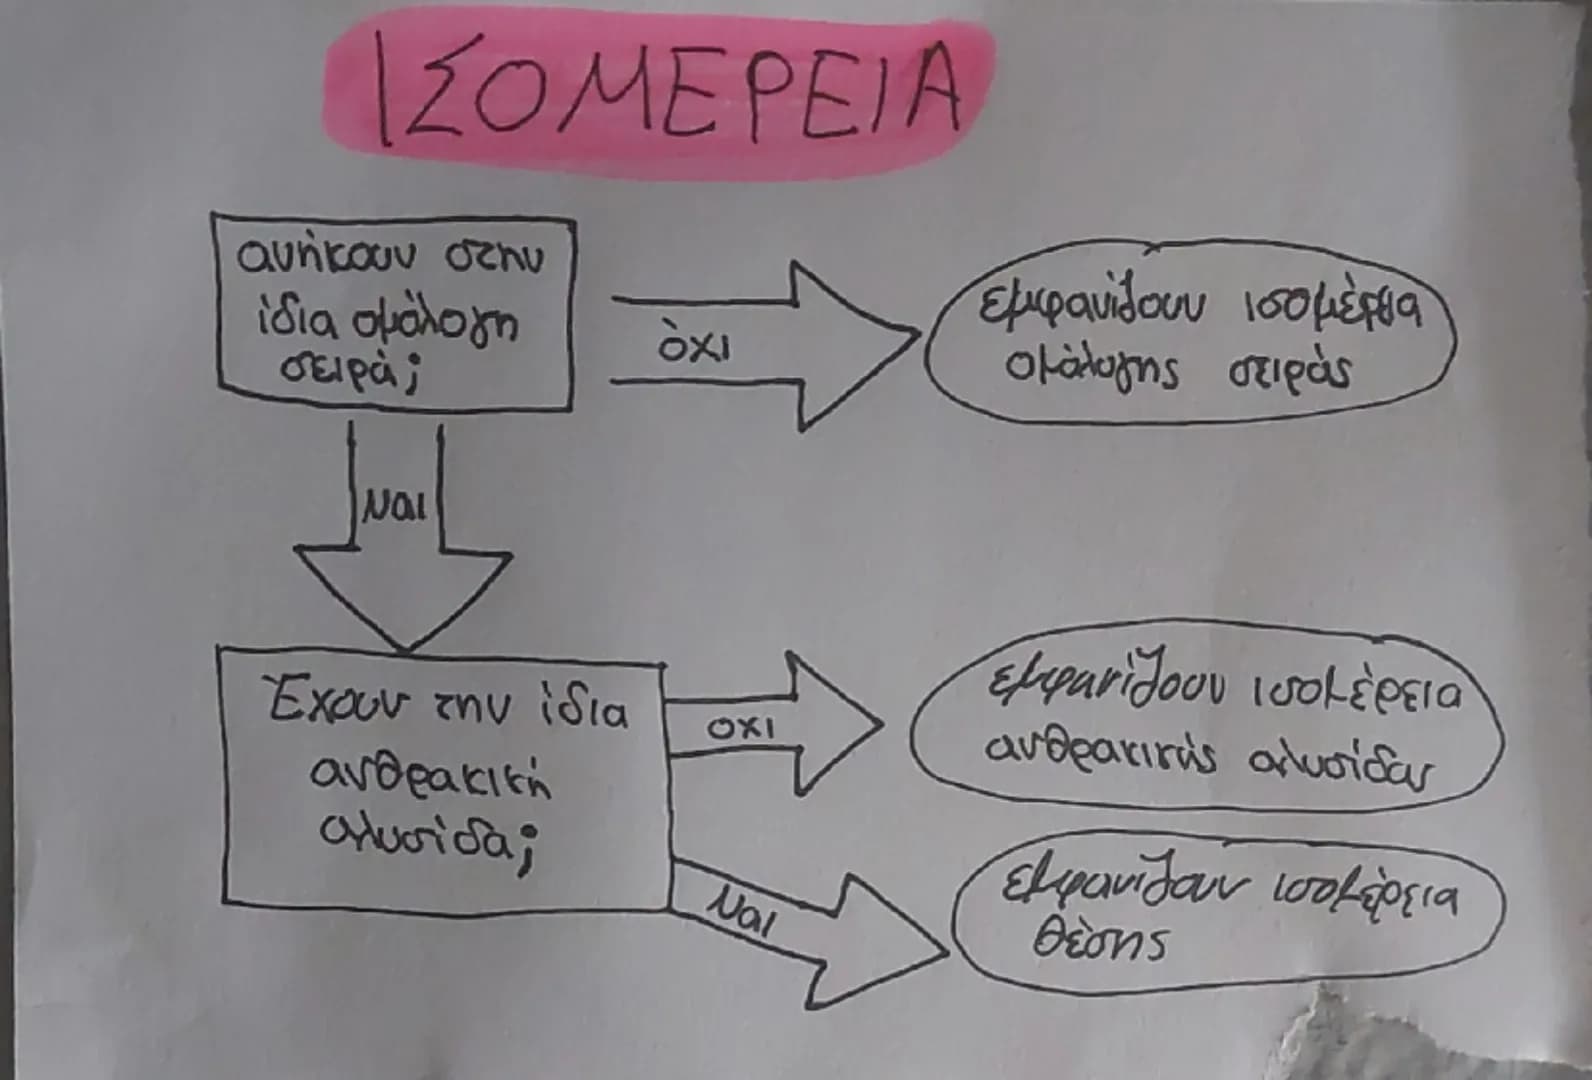 ΙΣΟΜΕΡΕΙΑ
ανήκουν στην
ίδια ομόλογη
σειρά;
όχι
εμφανίζουν ισομέρεια
ομόλογης σειράς
ναι
Έχουν την ίδια
ανθρακική
αλυσίδα;
οχι
εμφανίζουν ισομέρεια
ανθρακικής αλυσίδας
ναι
εμφανίζουν ισομέρεια
θέσης